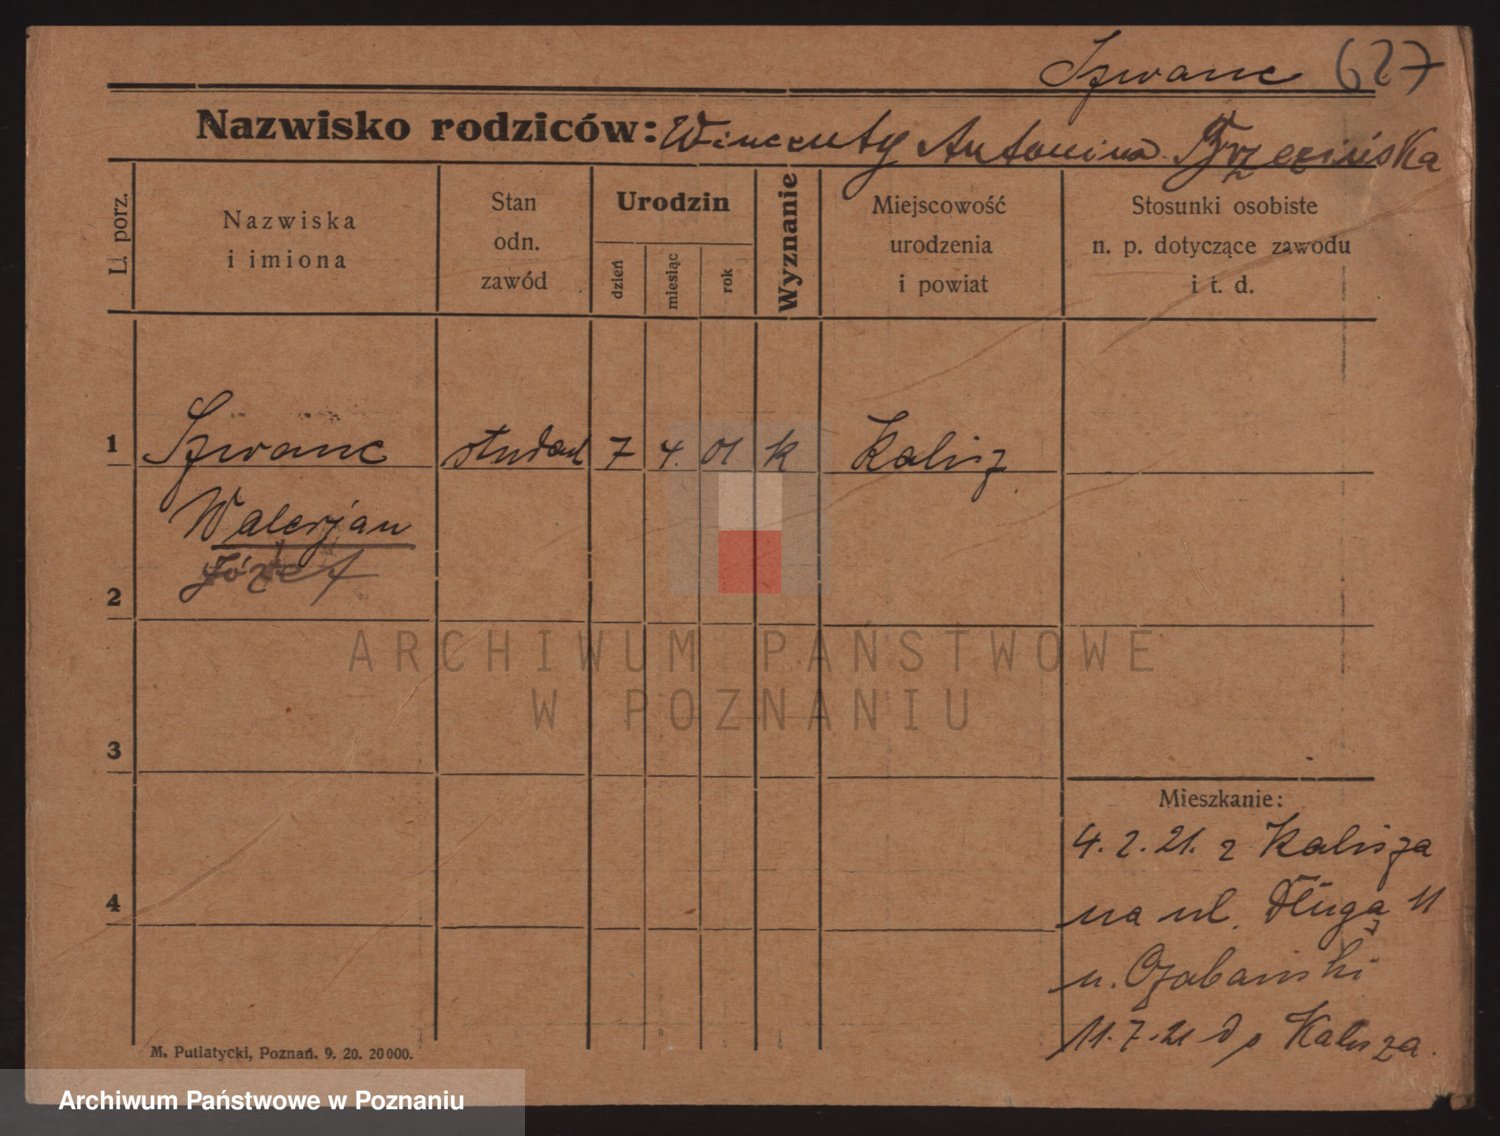 Szwanc 627
Nazwisko rodziców: Wincenty Antonina Brzezińska
L. porz.
Nazwiska
i imiona
Stan
odn.
zawód
Urodzin
dzień
miesiąc
rok
Wyznanie
Miejscowość
urodzenia
i powiat
Stosunki osobiste
n. p. dotyczące zawodu
i t. d.
1 Szwanc student 7 4. 01 k Kalisz
Walerjan
Józef
2
3
4
Mieszkanie:
4. 2. 21. z Kalisza
na ul. Długą 11
u.
11. 7. 21 do Kalisza.
M. Putiatycki, Poznań. 9. 20. 20000.
ARCHIWUM PAŃSTWOWE
W POZNANIU
Archiwum Państwowe w Poznaniu